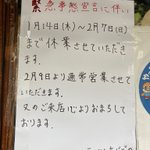 緊急事態宣言に伴い
1月14日(木)~2月7日(日)
まで休業させていただき
ます。
2月8日より通常営業させ
ていただきます。
又のご来店心よりおまちして
おります。